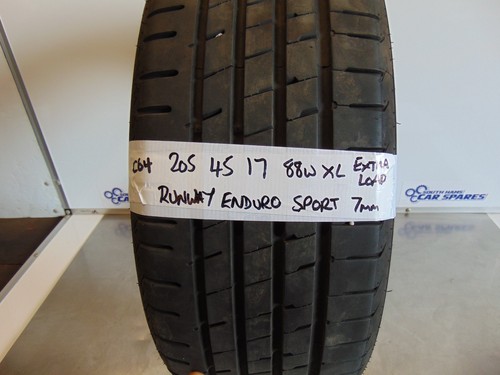 C64 205 45 17 88W XL EXTRA LOAD
RUNWAY ENDURO SPORT 7mm
SOUTH HAMS
CAR SPARES
CAR SPARES